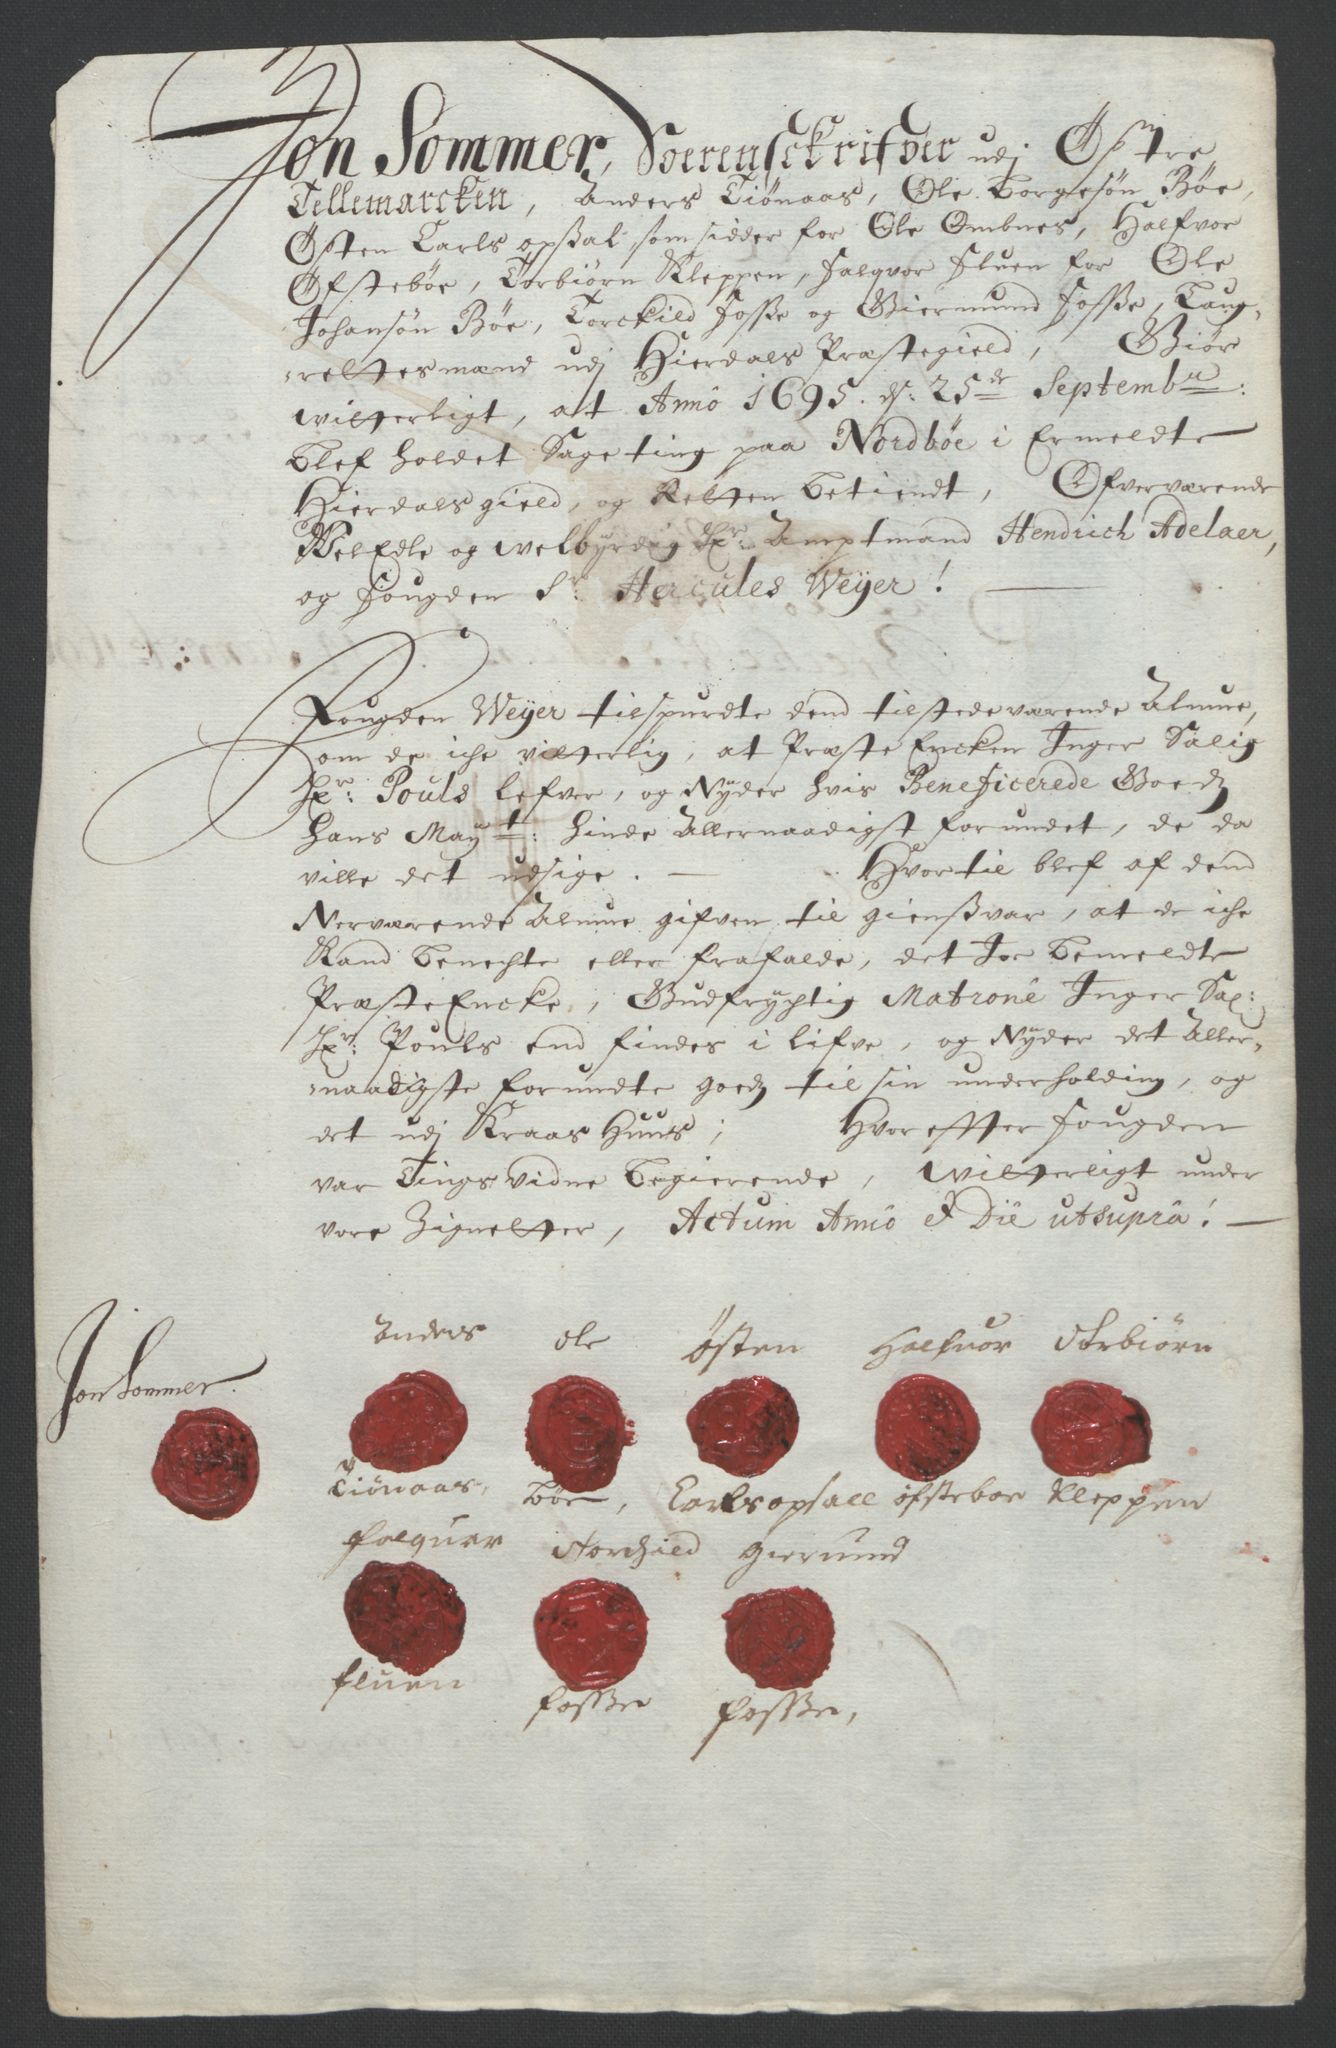 Jon Sommer, Soerenschrifver udj Østre
Tellemarcken, Anders Tiönaas, Ole Torgesøn Bøe,
Østen Carls opsal som sidder for Ole Ombnes, Halfvor
Øfstebøe, Torbiørn Kleppen, Falqvor Fluen for Ole
Johansøn Bøe, Torckild Fosse og Giermund Fosse, Laug-
rettesmænd udj Hierdals Præstegield, Giør
witterligt, at Anno 1695. d: 25de Septembr:
blef holdet Sageting paa Nordbøe i Ermeldte
Hierdals gield, og Retten betiendt, Ofverværende
WelEdle og welbyrdig Hr: Amptmand Hendrich Adelaer,
og Fougden Sr: Hercules Weÿer!
Fougden Weÿer tilspurdte dend tilstedeværende Almue,
om de iche vitterlig, at Præste Encken Inger Salig
Hr: Pouls lefver, og Nÿder hvis Beneficerede Goedz
Hans Maÿt: hinde Allernaadigst forundet, de da
ville det udsige. Hvortil blef af dend
Nerværende Almue gifven til giensvar, at de iche
Kand benechte eller frafalde, det Jo bemeldte
Præste Encke, Gudfrÿgtig Matrone Inger Sal:
Hr: Pouls end findes i lifve, og Nÿder det Aller-
naadigste forundte goedz til sin underholding, og
det udj Kraas Huus; Hvor effter Fougden
var Tings vidne begierende, witterligt under
vore Zignetter, Actum Anno & Die utsupra!
Anders Ole Østen Halfuor Torbiörn
Jon Sommer.
Tiönaas, Bøe, Carlsopsall öfsteboe Kleppen
falquar Torchild gierund
fluen fosse fosse,